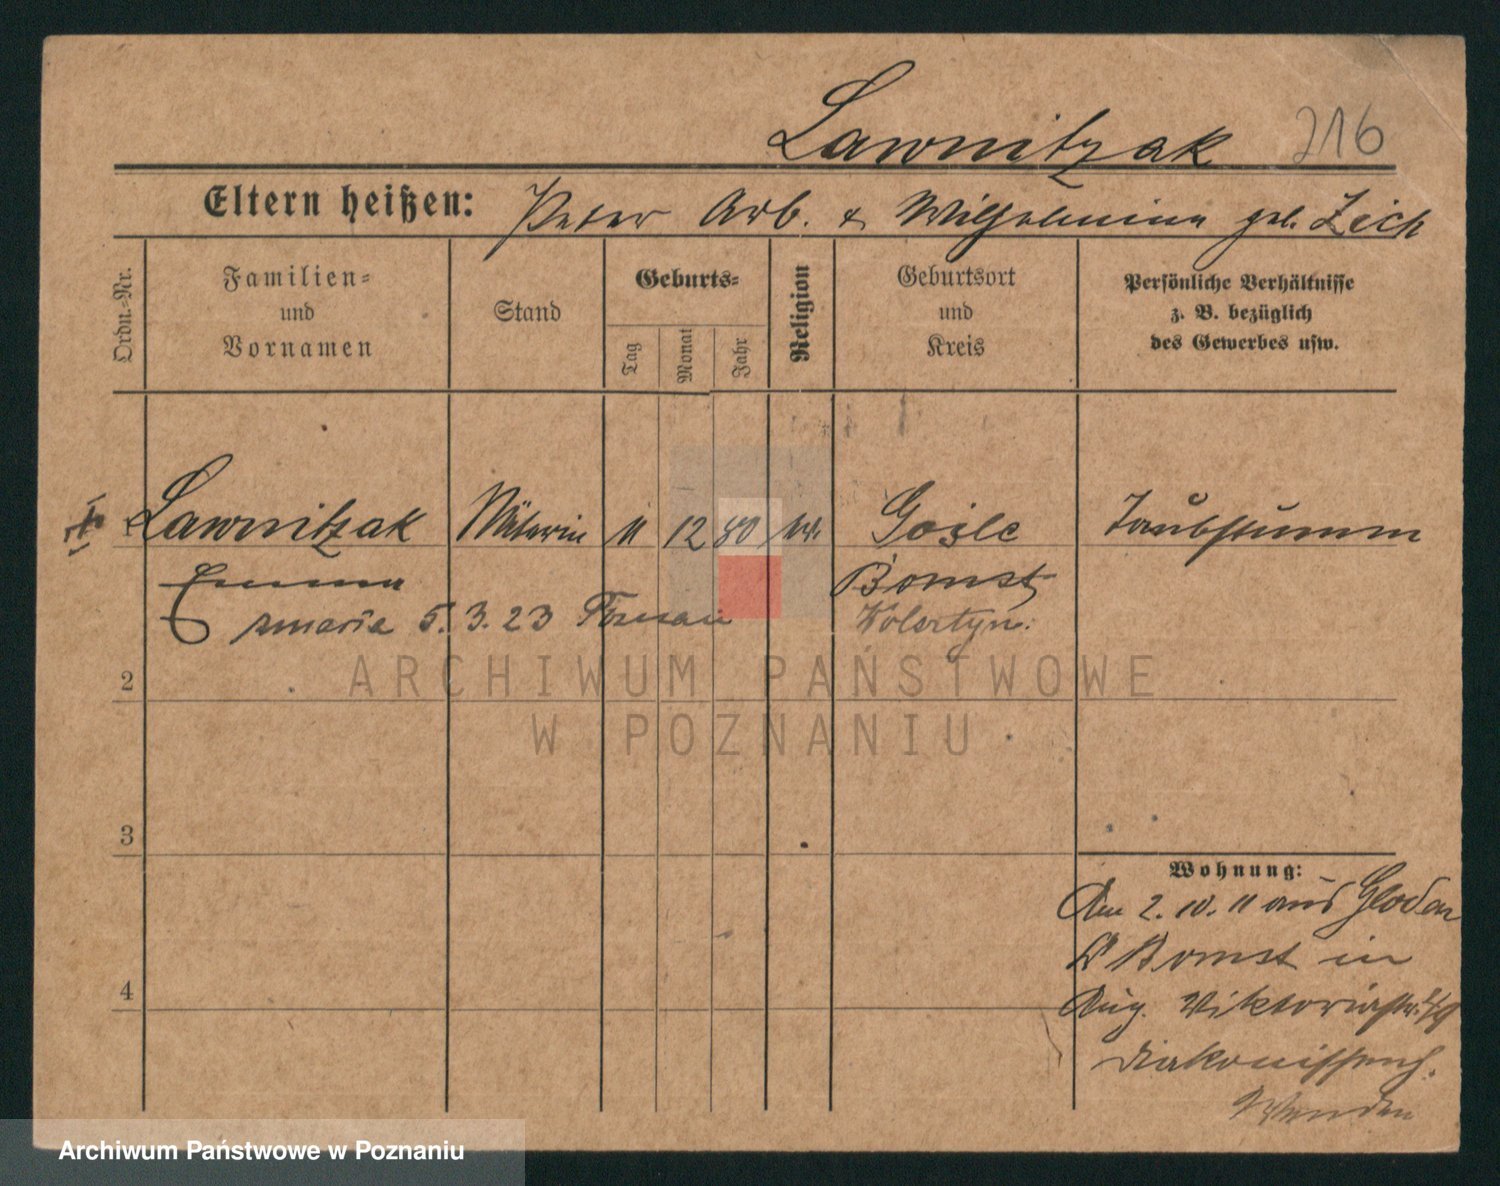 Lawnitzak 216
Eltern heißen: Peter Arb. & Wilhelmine geb. Zech
Ordn.-Nr.
Familien-
und
Vornamen
Stand
Geburts-
Tag
Monat
Jahr
Religion
Geburtsort
und
Kreis
Persönliche Verhältnisse
z. B. bezüglich
des Gewerbes usw.
1 Lawnitzak Näterin 11 12 80 Goile Taubstumm
Emma Bomst
Maria 5. 3. 23 Posnan Wolsztyn.
2
3
4
Wohnung:
Am 2. 10. 11 aus Gloden
Kr Bomst in
Aug. Viktoriastr.
Diakonissenh.
Wenden
ARCHIWUM PAŃSTWOWE
W POZNANIU
Archiwum Państwowe w Poznaniu